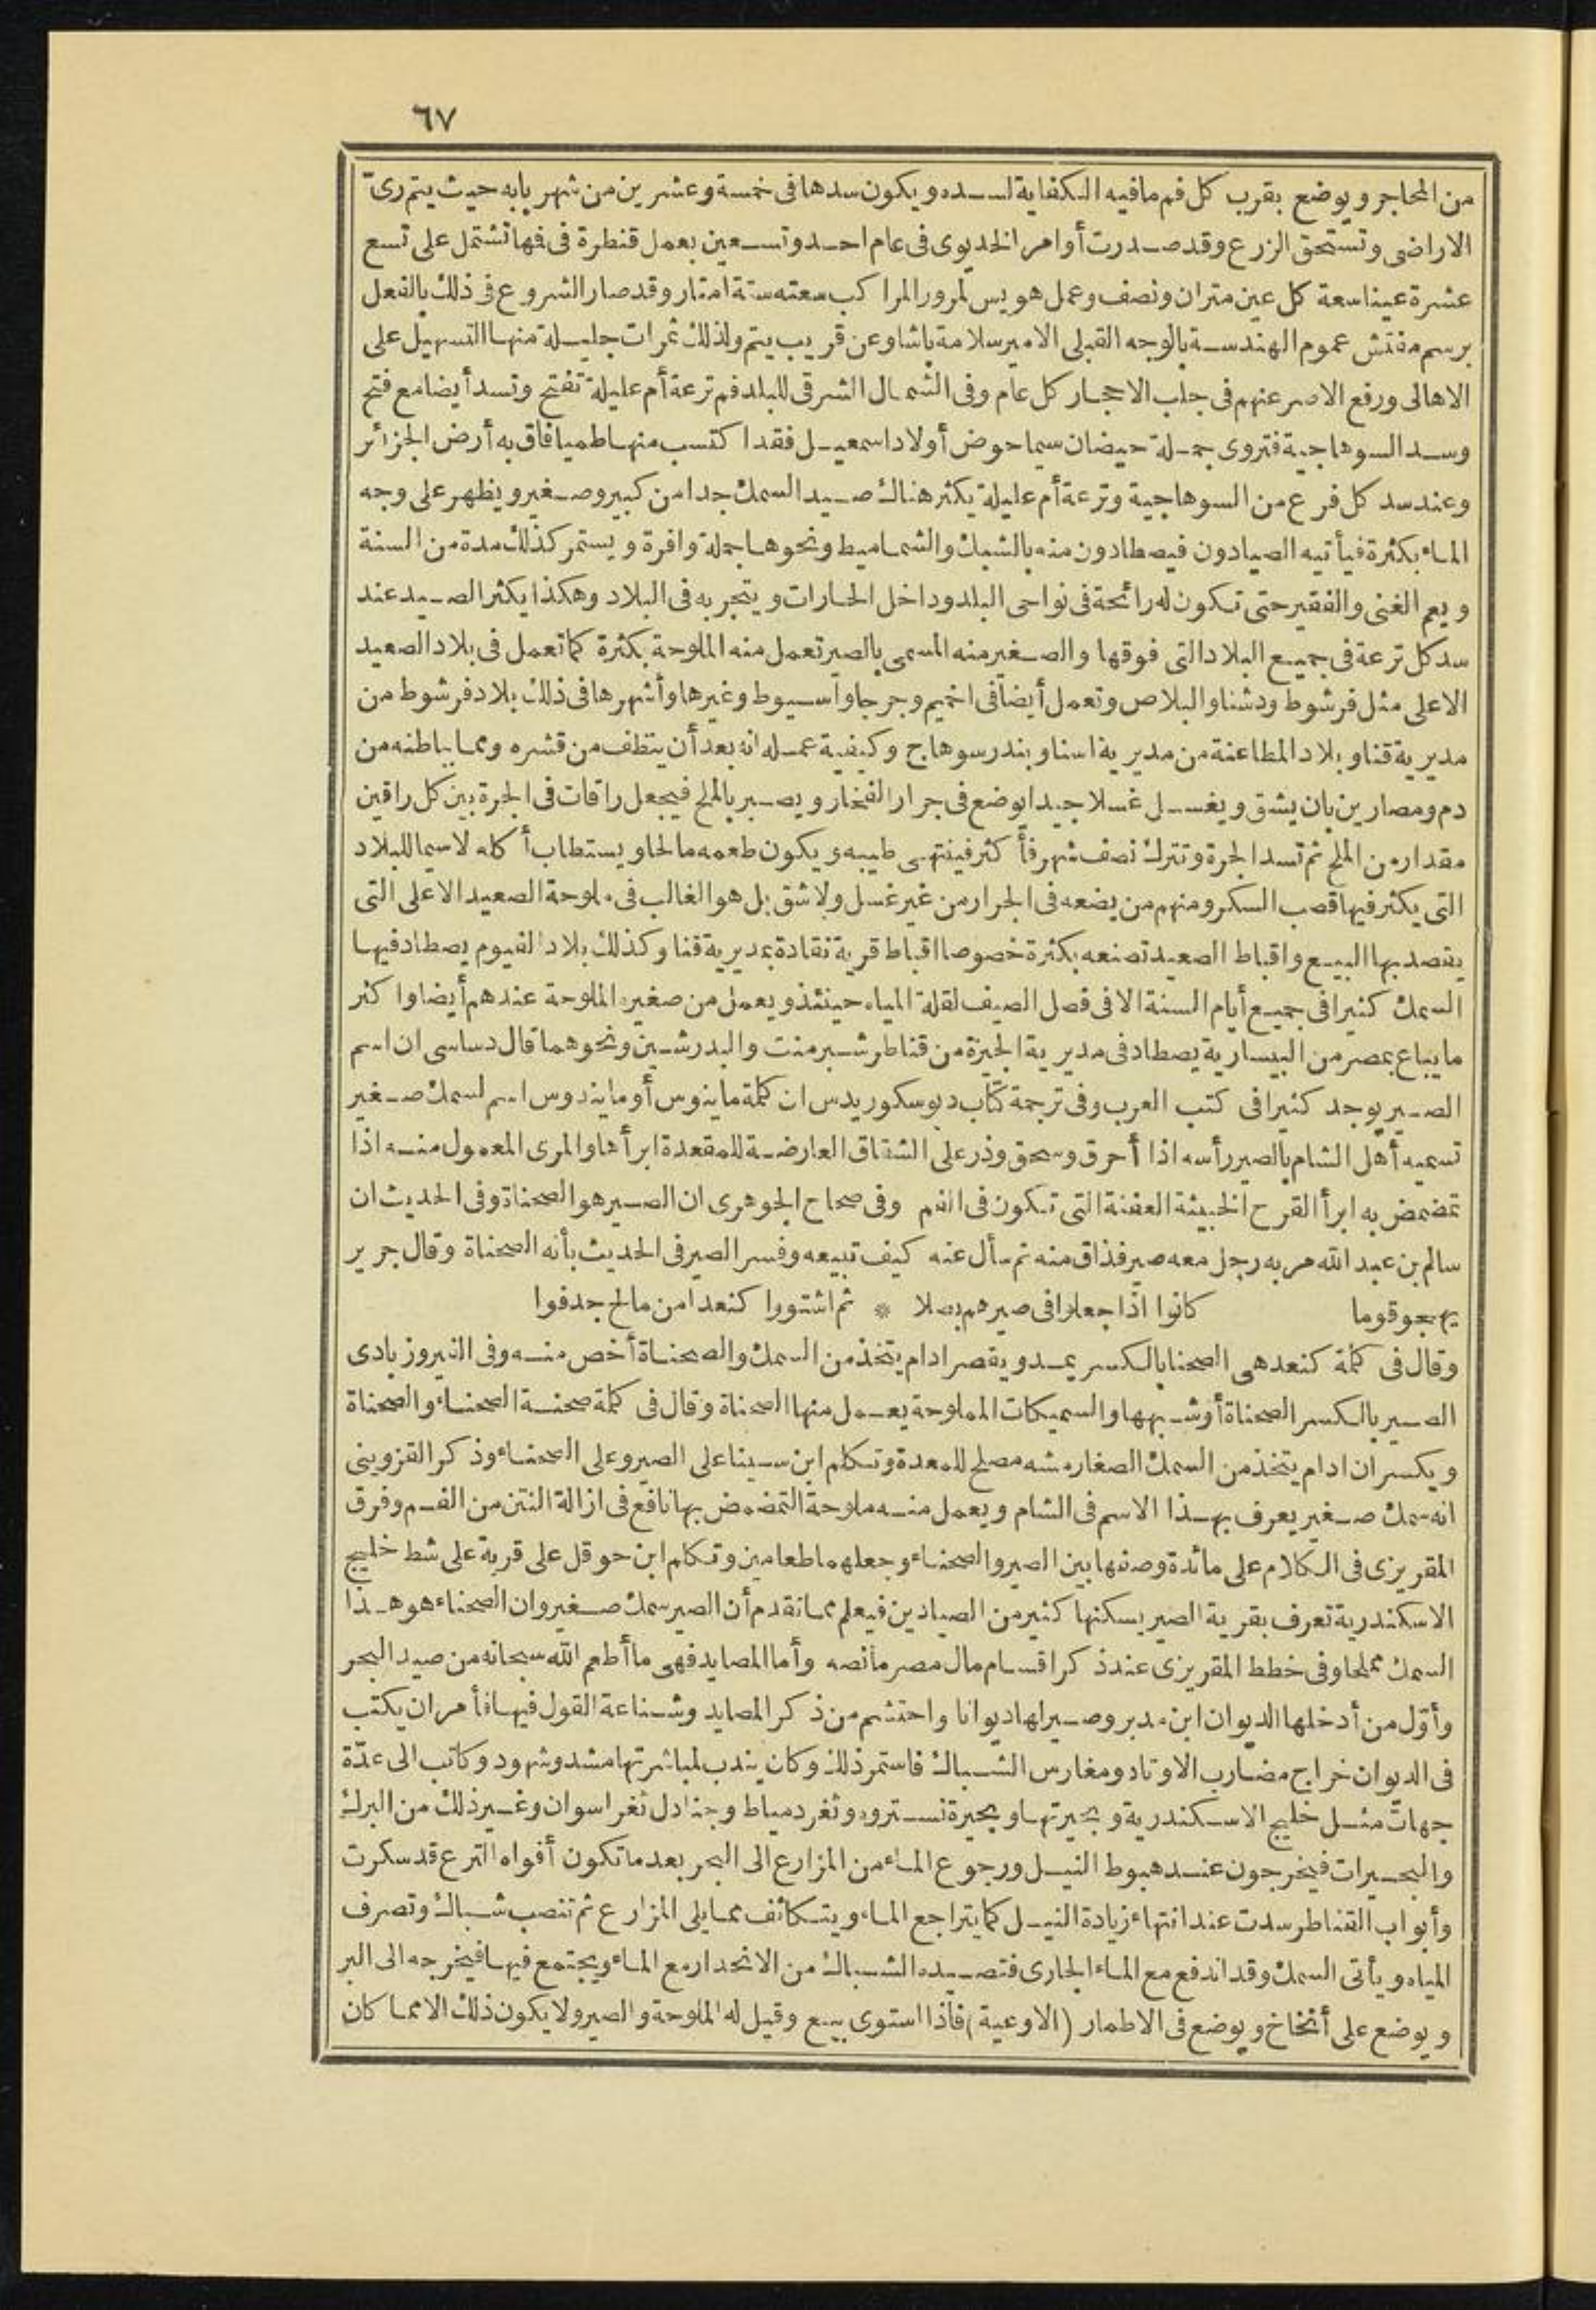 ٦٧
من المحاجر ويوضع بقرب كل فم مافيه الكفاية لسده ويكون سدها فى خمسة وعشرين من شهر بابه حيث يتم رىّ
الاراضى وتستحق الزرع وقد صدرت أوامر الخديوى فى عام احد وتسعين بعمل قنطرة فى فها تشتمل على تسع
عشرة عيناسعة كل عين متران ونصف وعمل هويس لمرور المراكب سعته ستة امتار وقد صار الشروع فى ذلك بالفعل
برسم مفتش عموم الهندسة بالوجه القبلى الامير سلامة باشا وعن قريب يتم ولذلك ثمرات جليلة منها التسهيل على
الاهالى ورفع الاصر عنهم فى جلب الاحجار كل عام وفى الشمال الشرقى للبلد فم ترعة أم عليلة تفتح وتسد أيضا مع فتح
وسد السوهاجية فتروى جملة حيضان سيما حوض أولاد اسمعيل فقد اكتسب منها طميا فاق به أرض الجزائر
وعند سد كل فرع من السوهاجية وترعة أم عليلة يكثر هناك صيد السمك جدا من كبير وصغير ويظهر على وجه
الماء بكثرة فيأتيه الصيادون فيصطادون منه بالشباك والشماميط ونحوها جملة وافرة ويستمر كذلك مدة من السنة
ويعم الغنى والفقير حتى تكون له رائحة فى نواحى البلد وداخل الحارات ويتجر به فى البلاد وهكذا يكثر الصيد عند
سد كل ترعة فى جميع البلاد التى فوقها والصغير منه المسمى بالصير تعمل منه الملوحة بكثرة كما تعمل فى بلاد الصعيد
الاعلى مثل فرشوط ودشنا والبلاص وتعمل أيضا فى اخميم وجرجا وأسيوط وغيرها وأشهرها فى ذلك بلاد فرشوط من
مديرية قنا وبلاد المطاعنة من مديرية اسنا وبندر سوهاج وكيفية عمله انه بعد أن ينظف من قشره ومما بباطنه من
دم ومصارين بان يشق ويغسل غسلا جيدا يوضع فى جرار الفخار ويصبر بالملح فيجعل راقات فى الجرة بين كل راقين
مقدار من الملح ثم تسد الجرة وتترك نصف شهر فأكثر فينتهى طيبه ويكون طعمه مالحا ويستطاب أكله لاسيما للبلاد
التى يكثر فيها قصب السكر ومنهم من يضعه فى الجرار من غير غسل ولاشق بل هو الغالب فى ملوحة الصعيد الاعلى التى
يقصد بها البيع واقباط الصعيد تصنعه بكثرة خصوصا اقباط قرية نقادة بمديرية قنا وكذلك بلاد الفيوم يصطاد فيها
السمك كثيرا فى جميع أيام السنة الا فى فصل الصيف لقلة المياه حينئذ ويعمل من صغيره الملوحة عندهم أيضا واكثر
مايباع بمصر من البيسارية يصطاد فى مديرية الجيزة من قناطر شبرمنت والبدرشين ونحوهما قال دساسى ان اسم
الصير يوجد كثيرا فى كتب العرب وفى ترجمة كتاب ديوسكوريدس ان كلمة ماينوس أو مايندوس اسم لسمك صغير
تسميه أهل الشام بالصير رأسه اذا أحرق وسحق وذر على الشقاق العارضة للمقعدة ابرأها والمرى المعمول منه اذا
تمضمض به ابرأ القرح الخبيثة العفنة التى تكون فى الفم وفى صحاح الجوهرى ان الصير هو الصحناة وفى الحديث ان
سالم بن عبد الله مر به رجل معه صير فذاق منه ثم سأل عنه كيف تبيعه وفسر الصير فى الحديث بأنه الصحناة وقال جرير
يهجو قوما كانوا اذا جعلوا فى صيرهم بصلا * ثم اشتووا كنعدا من مالح جدفوا
وقال فى كلمة كنعد هى الصحنا بالكسر يمد ويقصر ادام يتخذ من السمك والصحناة أخص منه وفى الفيروزبادى
الصير بالكسر الصحناة أو شبهها والسميكات المملوحة يعمل منها الصحناة وقال فى كلمة صحنة الصحناء والصحناة
ويكسران ادام يتخذ من السمك الصغار مشه مصلح للمعدة وتكلم ابن سينا على الصير وعلى الصحناء وذكر القزوينى
انه سمك صغير يعرف بهذا الاسم فى الشام ويعمل منه ملوحة التمضمض بها نافع فى ازالة النتن من الفم وفرق
المقريزى فى الكلام على مائدة وصفها بين الصير والصحناء وجعلهما طعامين وتكلم ابن حوقل على قرية على شط خليج
الاسكندرية تعرف بقرية الصير يسكنها كثير من الصيادين فيعلم مما تقدم أن الصير سمك صغير وان الصحناء هو هذا
السمك مملحا وفى خطط المقريزى عند ذكر اقسام مال مصر مانصه وأما المصايد فهى ما أطعم الله سبحانه من صيد البحر
وأوّل من أدخلها الديوان ابن مدبر وصير لها ديوانا واحتشم من ذكر المصايد وشناعة القول فيها فأمر ان يكتب
فى الديوان خراج مضارب الاوتاد ومغارس الشباك فاستمر ذلك وكان يندب لمباشرتها مشد وشهود وكاتب الى عدّة
جهات مثل خليج الاسكندرية وبحيرتها وبحيرة نستروه وثغر دمياط وجنادل ثغر اسوان وغير ذلك من البرك
والبحيرات فيخرجون عند هبوط النيل ورجوع الماء من المزارع الى البحر بعد ماتكون أفواه الترع قد سكرت
وأبواب القناطر سدت عند انتهاء زيادة النيل كما يتراجع الماء ويتكاثف مما يلى المزارع ثم تنصب شباك وتصرف
المياه ويأتى السمك وقد اندفع مع الماء الجارى فتصيده الشباك من الانحدار مع الماء ويجتمع فيها فيخرجه الى البر
ويوضع على أنخاخ ويوضع فى الاطمار (الاوعية) فاذا استوى بيع وقيل له الملوحة والصير ولا يكون ذلك الا مما كان